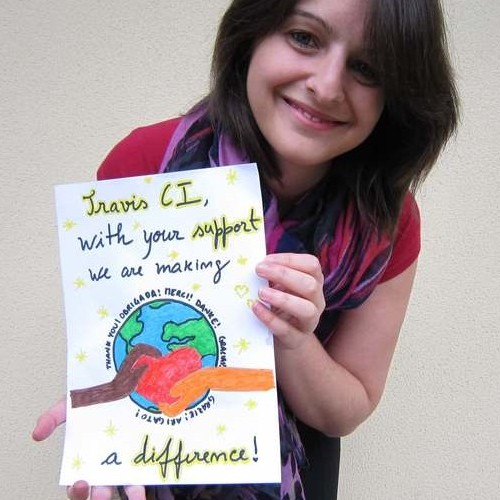 Travis CI,
with your support
we are making
THANK YOU! OBRIGADA! MERCI! DANKE! GRACIAS!
GRAZIE! ARIGATO!
a difference!